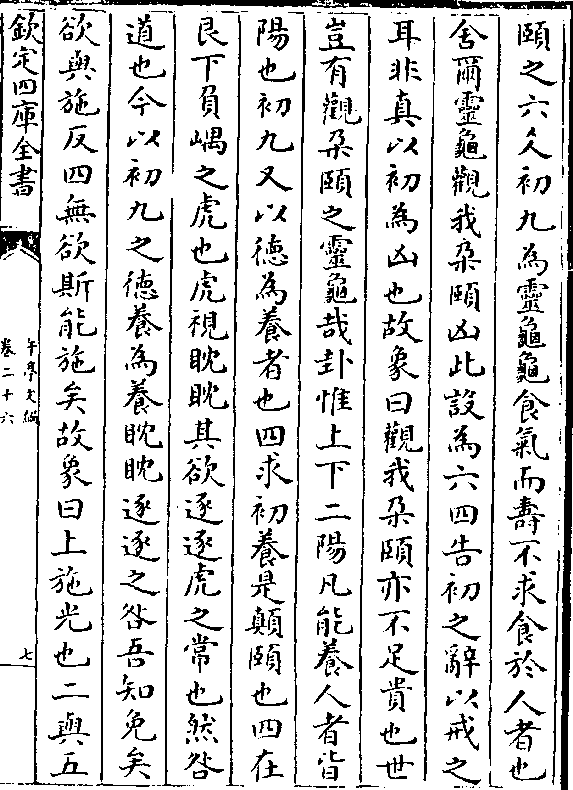 頤之六爻初九為靈龜龜食氣而壽不求食於人者也
舍爾靈龜觀我朶頤凶此設為六四告初之辭以戒之
耳非真以初為凶也故象曰觀我朶頤亦不足貴也世
豈有觀朶頤之靈龜哉卦惟上下二陽凡能養人者皆
陽也初九又以德為養者也四求初養是顛頤也四在
艮下負嵎之虎也虎視眈眈其欲逐逐虎之常也然咎
道也今以初九之德養為養眈眈逐逐之咎吾知免矣
欲與施反四無欲斯能施矣故象曰上施光也二與五
欽定四庫全書
卷二十六
七